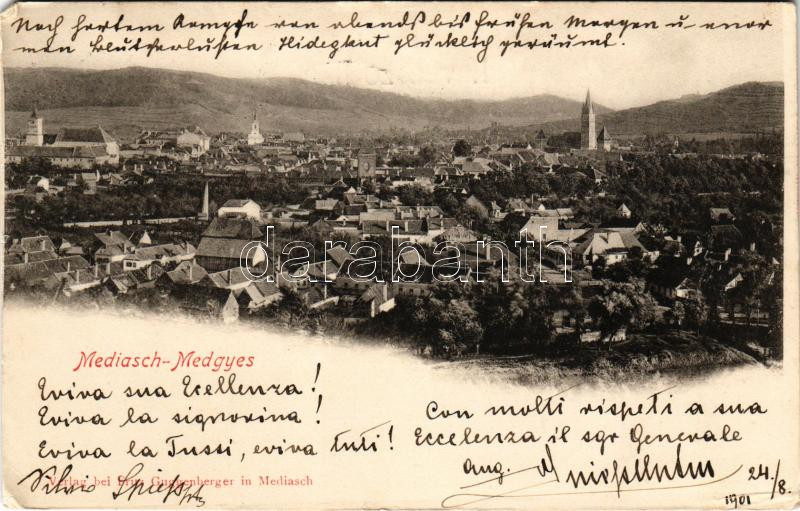 Nach hartem Kampfe von abends bis frühen Morgen u. enor
men Blutverlusten Hidegkut glücklich geräumt.
darabanth
Mediasch-Medgyes
Eviva sua Ecellenza!
Eviva la signorina!
Eviva la Tussi, eviva tuti!
Con molti rispeti a sua
Eccelenza il sgr Generale
Aug.
Silvio
Verlag bei Fritz Guggenberger in Mediasch
24./8.
1901